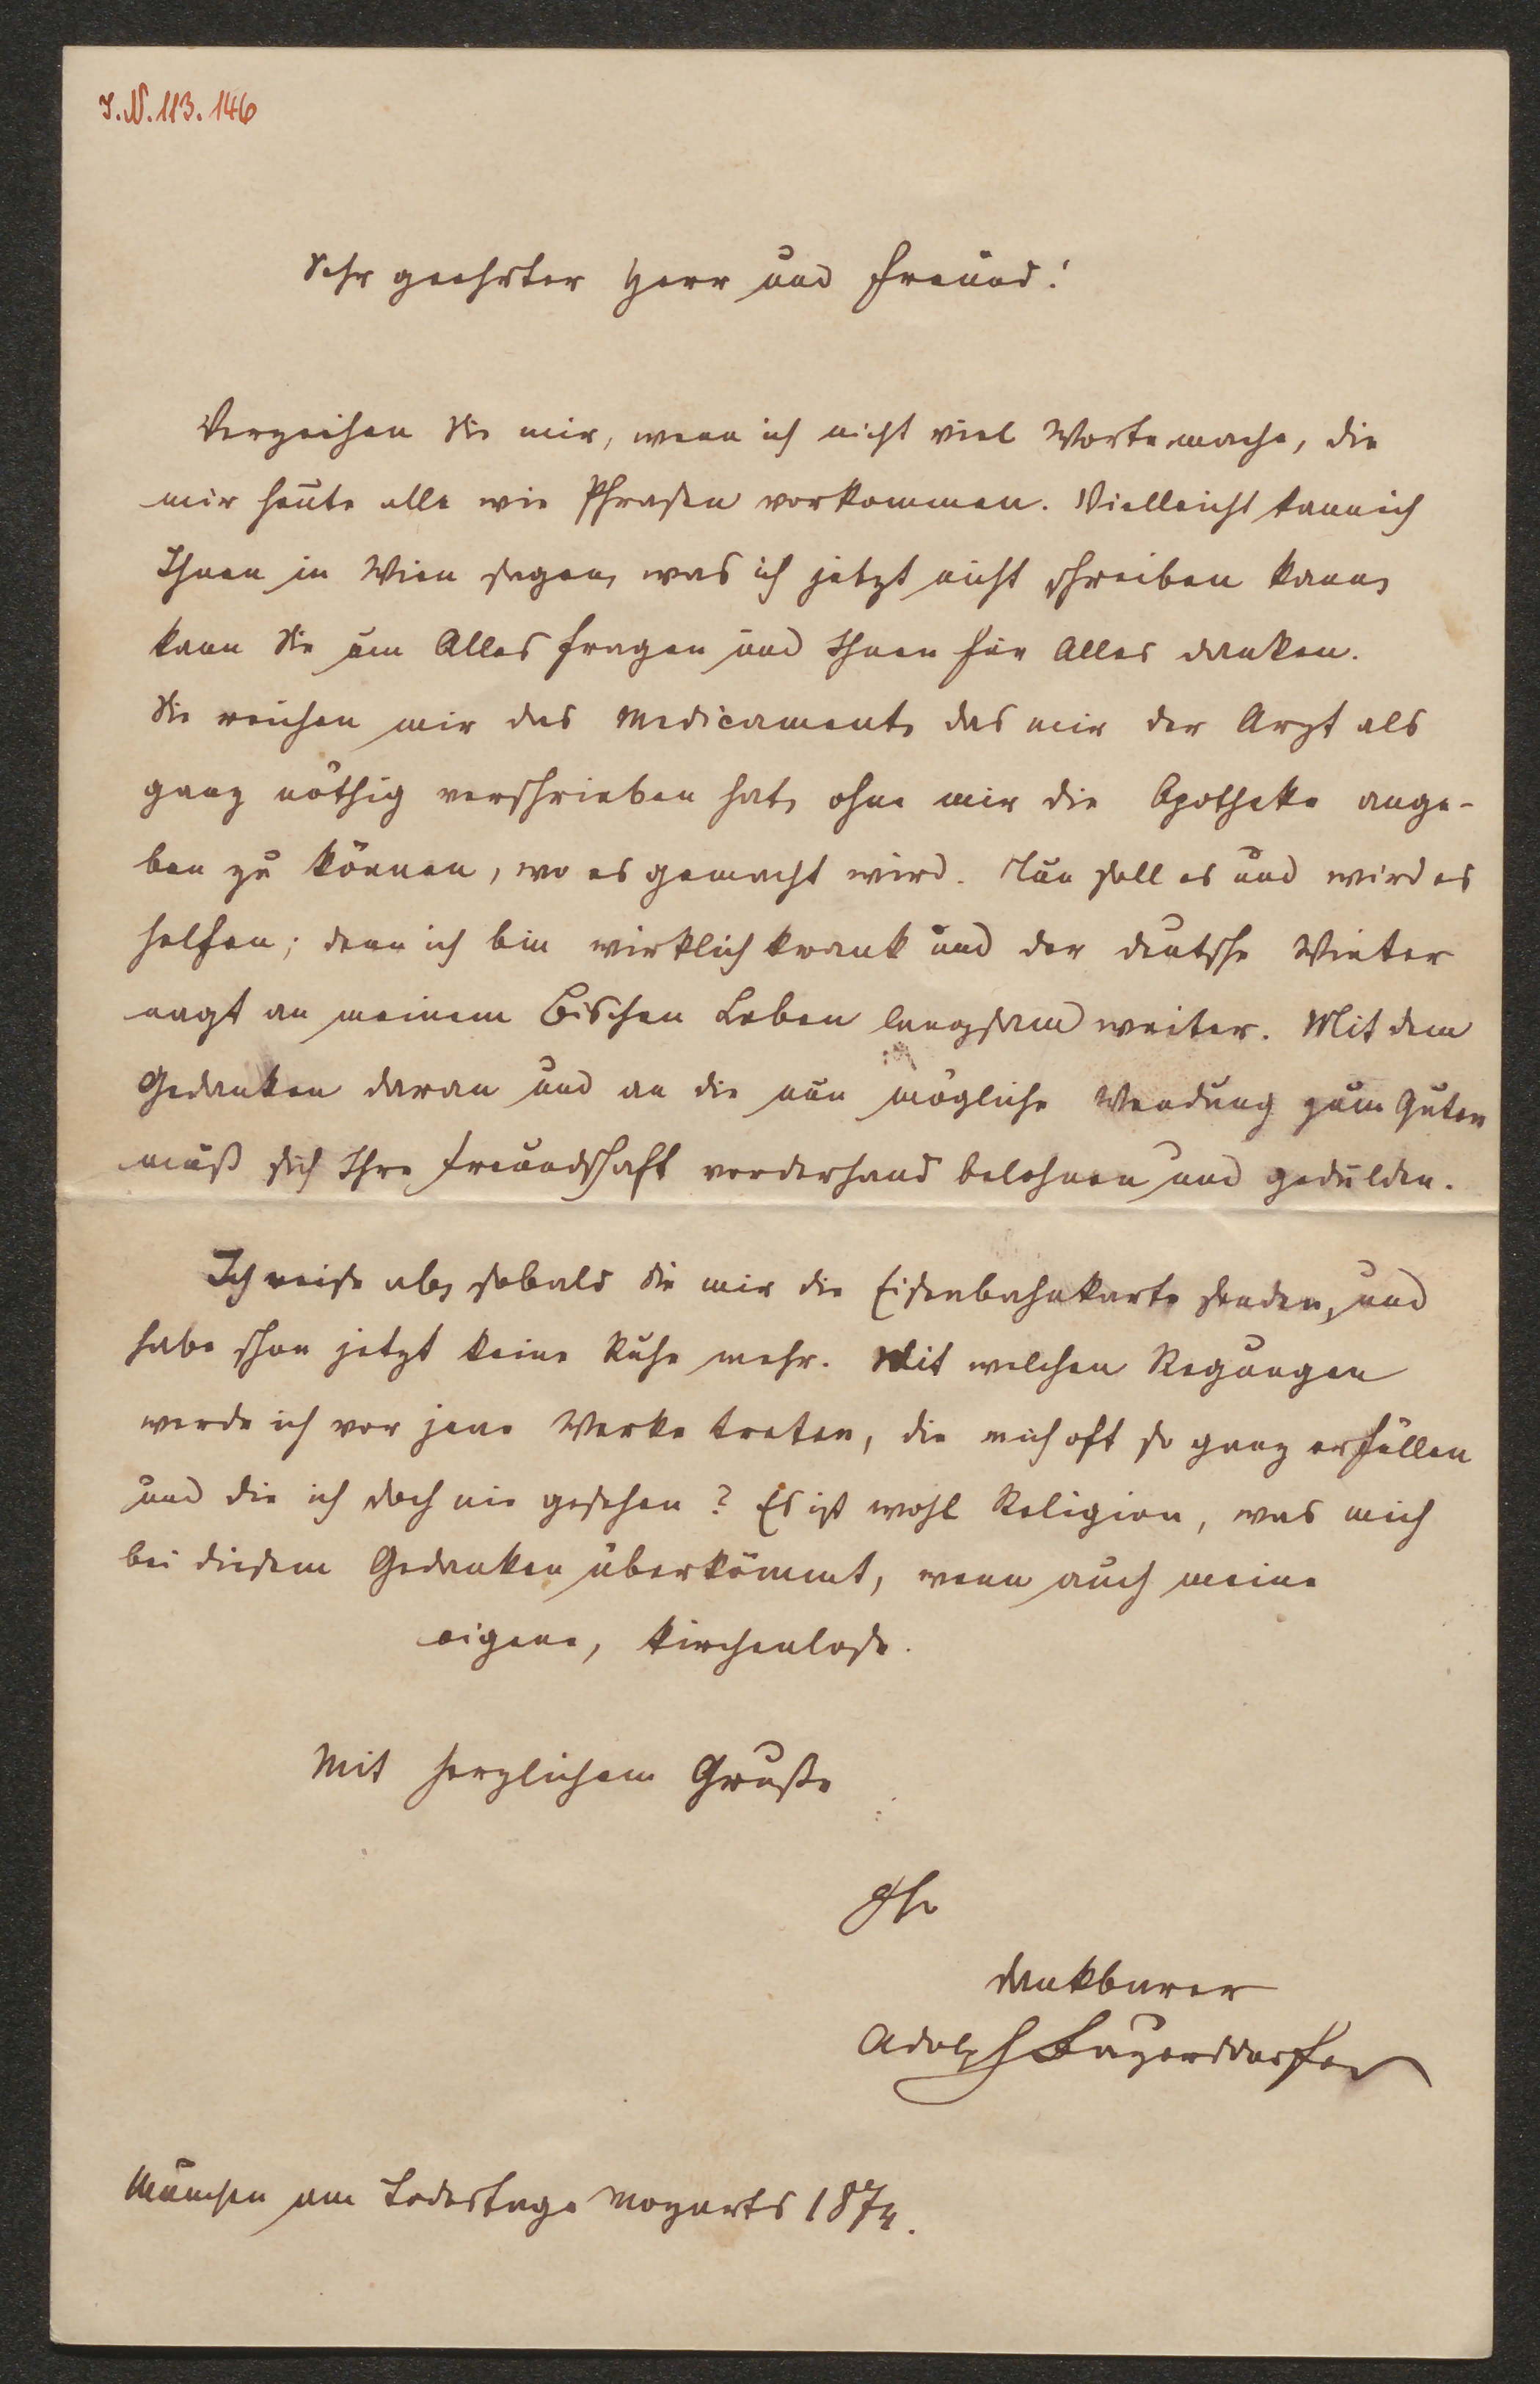 I.N.113.146
Sehr geehrter Herr und Freund!
Verzeihen Sie mir, wenn ich nicht viel Worte mache, die
mir heute alle wie Phrasen vorkommen. Vielleicht kann ich
Ihnen in Wien sagen, was ich jetzt nicht schreiben kann,
kann Sie um Alles fragen und Ihnen für Alles danken.
Sie reichen mir das Medicament, das mir der Arzt als
ganz nöthig verschrieben hat, ohne mir die Apotheke ange-
ben zu können, wo es gemacht wird. Nun soll es und wird es
helfen; denn ich bin wirklich krank und der deutsche Winter
nagt an meinem Bischen Leben langsam weiter. Mit dem
Gedanken daran und an die nun mögliche Wendung zum Guten
muß sich Ihre Freundschaft vorderhand belohnen und gedulden.
Ich reise ab, sobald Sie mir die Eisenbahnkarte senden, und
habe schon jetzt keine Ruhe mehr. Mit welchen Regungen
werde ich vor jene Werke treten, die mich oft so ganz erfüllen
und die ich doch nie gesehen? Es ist wohl Religion, was mich
bei diesem Gedanken überkömmt, wenn auch meine
eigene, kirchenlose.
Mit herzlichem Gruße
Ihr
dankbarer
Adolph Bayersdorfer
München am Todestage Mozarts 1874.